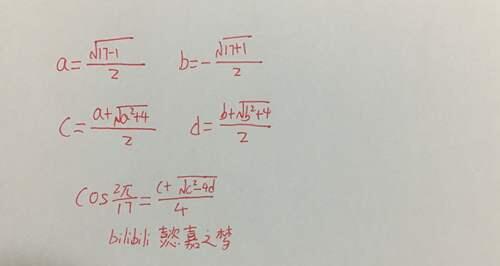 a=√17-1/2 b=-√17+1/2
c=a+√a²+4/2 d=b+√b²+4/2
cos2π/17=c+√c²-4d/4
bilibili 懿嘉之梦